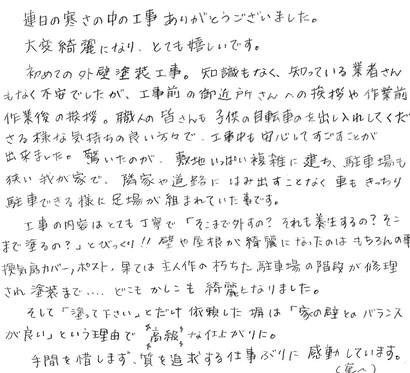 連日の寒さの中の工事ありがとうございました。
大変綺麗になり、とても嬉しいです。
初めての外壁塗装工事。知識もなく、知っている業者さん
もなく不安でしたが、工事前の御近所さんへの挨拶や作業前
作業後の挨拶。職人の皆さんも子供の自転車の出し入れしてくだ
さる様な気持ちの良い方々で、工事中も安心してすごすことが
出来ました。驚いたのが、敷地いっぱい複雑に建ち、駐車場も
狭い我が家で、隣家や道路にはみ出すことなく車もきっちり
駐車できる様に足場が組まれていた事です。
工事の内容はとても丁寧で「そこまで外すの?それも養生するの?そこ
まで塗るの?」とびっくり!!壁や屋根が綺麗になったのはもちろんの事
換気扇カバー、ポスト、果ては主人作の朽ちた駐車場の階段が修理
され塗装まで....どこもかしこも綺麗になりました。
そして「塗って下さい」とだけ依頼した塀は「家の壁とのバランス
が良い」という理由で"高級"な仕上がりに。
手間を惜しまず、質を追求する仕事ぶりに感動しています。